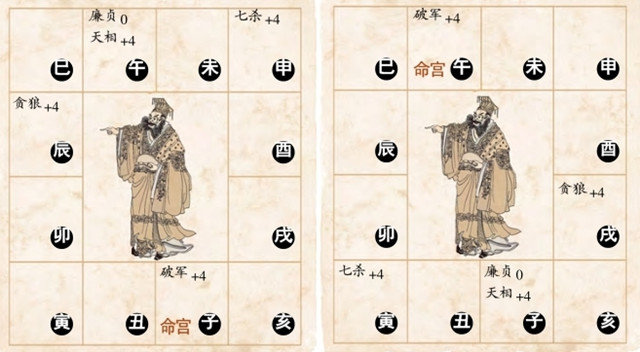 廉贞 0
天相 +4
七杀 +4
巳
午
未
申
贪狼 +4
辰
酉
卯
戌
破军 +4
寅
丑
命宫
子
亥
破军 +4
巳
命宫
午
未
申
辰
酉
贪狼 +4
卯
戌
七杀 +4
廉贞 0
天相 +4
寅
丑
子
亥